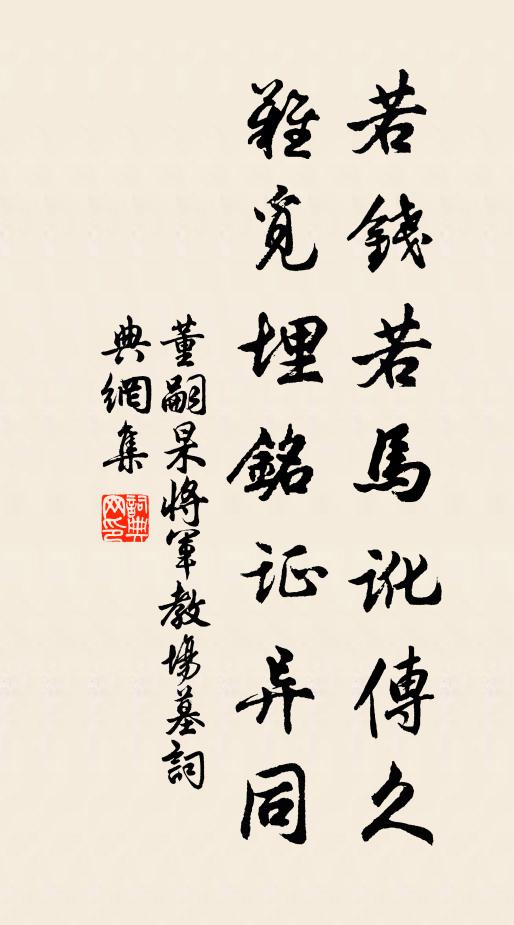 若錢若馬訛傳久
難覓埋銘証异同
董嗣杲將軍教場墓詞
典網集
詞典網印